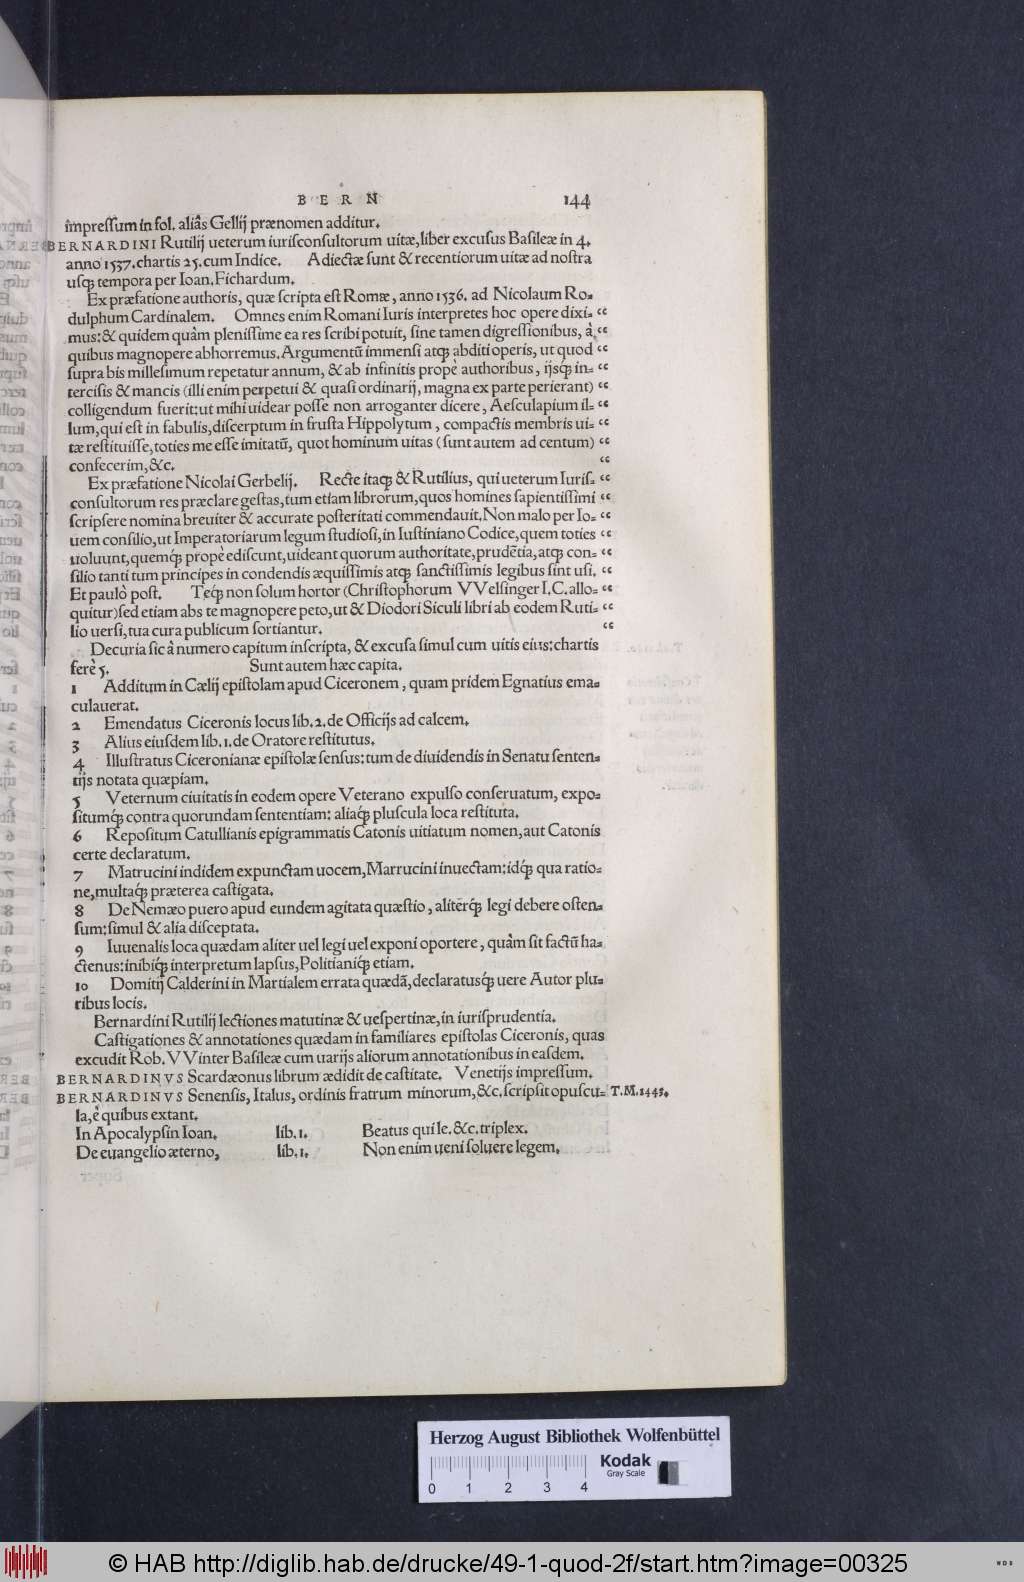 B E R N 144
impreſſum in fol. aliâs Gellij prænomen additur.
BERNARDINI Rutilij ueterum iuriſconſultorum uitæ, liber excuſus Baſileæ in 4.
anno 1537. chartis 25. cum Indice. Adiectæ ſunt & recentiorum uitæ ad noſtra
uſq; tempora per Ioan. Fichardum.
Ex præfatione authoris, quæ ſcripta eſt Romæ, anno 1536. ad Nicolaum Ro-
dulphum Cardinalem. Omnes enim Romani Iuris interpretes hoc opere dixi- “
mus: & quidem quàm pleniſſime ea res ſcribi potuit, ſine tamen digreſſionibus, à “
quibus magnopere abhorremus. Argumentũ immenſi atq; abditi operis, ut quod “
ſupra bis milleſimum repetatur annum, & ab infinitis propè authoribus, ijsq́; in- “
terciſis & mancis (illi enim perpetui & quaſi ordinarij, magna ex parte perierant) “
colligendum fuerit: ut mihi uidear poſſe non arroganter dicere, Aeſculapium il- “
lum, qui eſt in fabulis, diſcerptum in fruſta Hippolytum, compactis membris ui- “
tæ reſtituiſſe, toties me eſſe imitatũ, quot hominum uitas (ſunt autem ad centum) “
confecerim, &c. “
Ex præfatione Nicolai Gerbelij. Recte itaq; & Rutilius, qui ueterum Iuriſ- “
conſultorum res præclare geſtas, tum etiam librorum, quos homines ſapientiſſimi “
ſcripſere nomina breuiter & accurate poſteritati commendauit. Non malo per Io- “
uem conſilio, ut Imperatoriarum legum ſtudioſi, in Iuſtiniano Codice, quem toties “
uoluunt, quemq́; propè ediſcunt, uideant quorum authoritate, prudẽtia, atq; con- “
ſilio tanti tum principes in condendis æquiſſimis atq; ſanctiſſimis legibus ſint uſi. “
Et paulò poſt. Teq́; non ſolum hortor (Chriſtophorum VVelſinger I.C. allo- “
quitur) ſed etiam abs te magnopere peto, ut & Diodori Siculi libri ab eodem Ruti- “
lio uerſi, tua cura publicum ſortiantur. “
Decuria ſic à numero capitum inſcripta, & excuſa ſimul cum uitis eius: chartis
ferè 5. Sunt autem hæc capita.
1 Additum in Cælij epiſtolam apud Ciceronem, quam pridem Egnatius ema-
culauerat.
2 Emendatus Ciceronis locus lib. 2. de Officijs ad calcem.
3 Alius eiuſdem lib. 1. de Oratore reſtitutus.
4 Illuſtratus Ciceronianæ epiſtolæ ſenſus: tum de diuidendis in Senatu ſenten-
tijs notata quæpiam.
5 Veternum ciuitatis in eodem opere Veterano expulſo conſeruatum, expo-
ſitumq́; contra quorundam ſententiam: aliaq́; pluſcula loca reſtituta.
6 Repoſitum Catullianis epigrammatis Catonis uitiatum nomen, aut Catonis
certe declaratum.
7 Matrucini indidem expunctam uocem, Marrucini inuectam: idq́; qua ratio-
ne, multaq́; præterea caſtigata.
8 De Nemæo puero apud eundem agitata quæſtio, aliterq́; legi debere oſten-
ſum: ſimul & alia diſceptata.
9 Iuuenalis loca quædam aliter uel legi uel exponi oportere, quàm ſit factũ ha-
ctenus: inibiq́; interpretum lapſus, Politianiq́; etiam.
10 Domitij Calderini in Martialem errata quædã, declaratusq́; uere Autor plu-
ribus locis.
Bernardini Rutilij lectiones matutinæ & ueſpertinæ, in iuriſprudentia.
Caſtigationes & annotationes quædam in familiares epiſtolas Ciceronis, quas
excudit Rob. VVinter Baſileæ cum uarijs aliorum annotationibus in eaſdem.
BERNARDINVS Scardæonus librum ædidit de caſtitate. Venetijs impreſſum.
BERNARDINVS Senenſis, Italus, ordinis fratrum minorum, &c. ſcripſit opuſcu- T.M.1443.
la, è quibus extant.
In Apocalypſin Ioan. lib. 1. Beatus qui le. &c. triplex.
De euangelio æterno, lib. 1. Non enim ueni ſoluere legem.
Herzog August Bibliothek Wolfenbüttel
0 1 2 3 4
Kodak
Gray Scale
© HAB http://diglib.hab.de/drucke/49-1-quod-2f/start.htm?image=00325